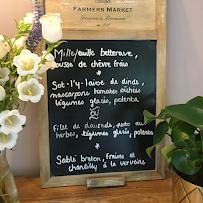 FARMERS MARKET
Mille feuille betterave,
mousse de chèvre frais
Sot-l'y-laisse de dinde,
mascarpone tomates séchées
légumes glacés, polenta
ou
Filet de daurade, pesto aux
herbes, légumes glacés, polenta
Sablé breton, fraises et
chantilly à la verveine